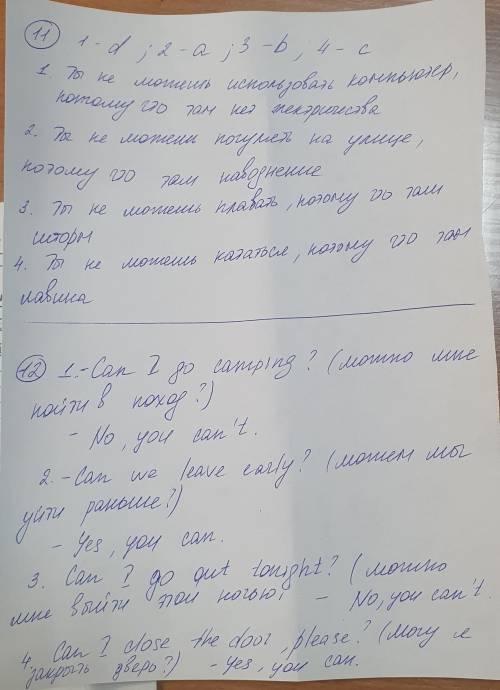 11 1-d ; 2-a ; 3-b ; 4-c
1. Ты не можешь использовать компьютер,
потому что там нет электричества
2. Ты не можешь погулять на улице,
потому что там наводнение
3. Ты не можешь плавать, потому что там
шторы
4. Ты не можешь кататься, потому что там
лавина
12 1.- Can I go camping? (можно мне
пойти в поход?)
- No, you can't.
2. - Can we leave early? (можем мы
уйти раньше?)
- Yes, you can.
3. Can I go out tonight? (можно
мне выйти этой ночью? - No, you can't.
4. Can I close the door, please? (могу я
закрыть дверь?) - Yes, you can.